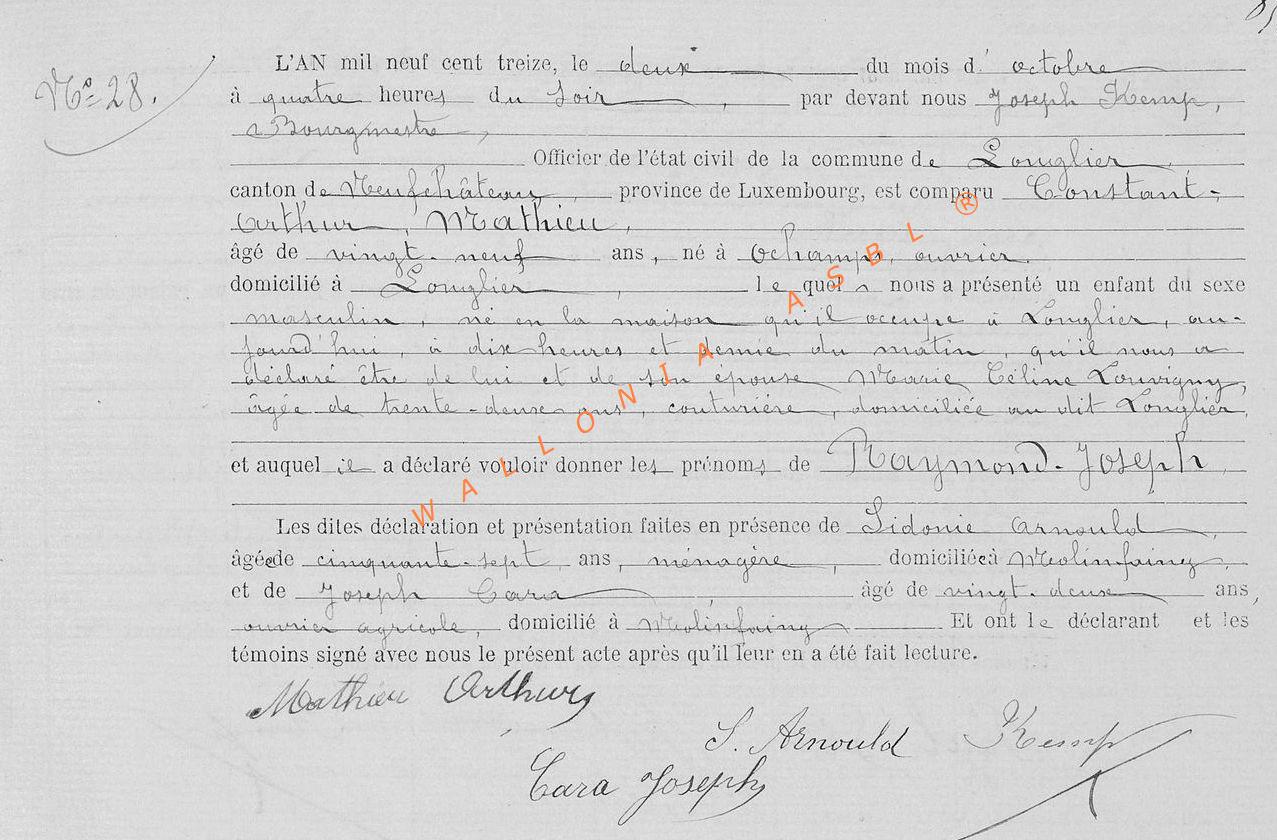 N° 28.
L'AN mil neuf cent treize, le deux du mois d' octobre
à quatre heures du soir, par devant nous Joseph Kemp,
Bourgmestre,
Officier de l'état civil de la commune de Longlier,
canton de Neufchâteau, province de Luxembourg, est comparu Constant-
Arthur, Mathieu,
âgé de vingt-neuf ans, né à Ochamps, ouvrier.
domicilié à Longlier, lequel nous a présenté un enfant du sexe
masculin, né en la maison qu'il occupe à Longlier, au-
jourd'hui, à dix heures et demie du matin, qu'il nous a
déclaré être de lui et de son épouse Marie Céline Louvigny,
âgée de trente-deux ans, couturière, domiciliée au dit Longlier,
et auquel il a déclaré vouloir donner les prénoms de Raymond-Joseph,
Les dites déclaration et présentation faites en présence de Sidonie Arnould,
âgée de cinquante-sept ans, ménagère, domiciliée à Molinfaing,
et de Joseph Cara, âgé de vingt-deux ans,
ouvrier agricole, domicilié à Molinfaing. Et ont le déclarant et les
témoins signé avec nous le présent acte après qu'il leur en a été fait lecture.
Mathieu Arthur
S. Arnould Kemp
Cara Joseph
WALLONIA ASBL ®